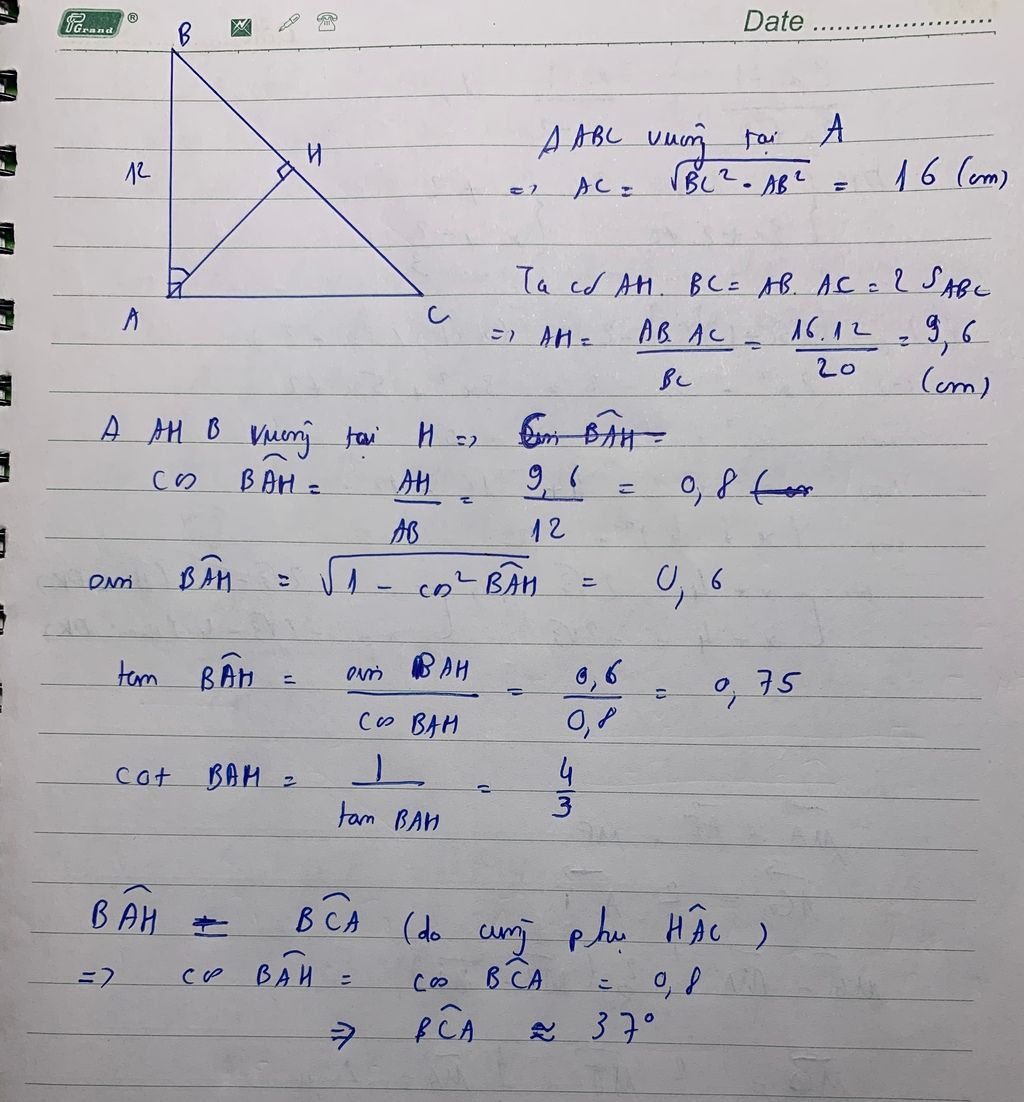 PGrand ®
Date
B
12
H
A
C
Δ ABC vuông tại A
=> AC = √BC² - AB² = 16 (cm)
Ta có AH. BC = AB. AC = 2 S ABC
=> AH = AB. AC / BC = 16.12 / 20 = 9,6 (cm)
Δ AHB vuông tại H =>
cos BÂH = AH / AB = 9,6 / 12 = 0,8
sin BÂH = √1 - cos² BÂH = 0,6
tan BÂH = sin BAH / cos BAH = 0,6 / 0,8 = 0,75
cot BAH = 1 / tan BAH = 4/3
BÂH = BĈA (do cùng phụ HÂC)
=> cos BÂH = cos BĈA = 0,8
=> BĈA ≈ 37°